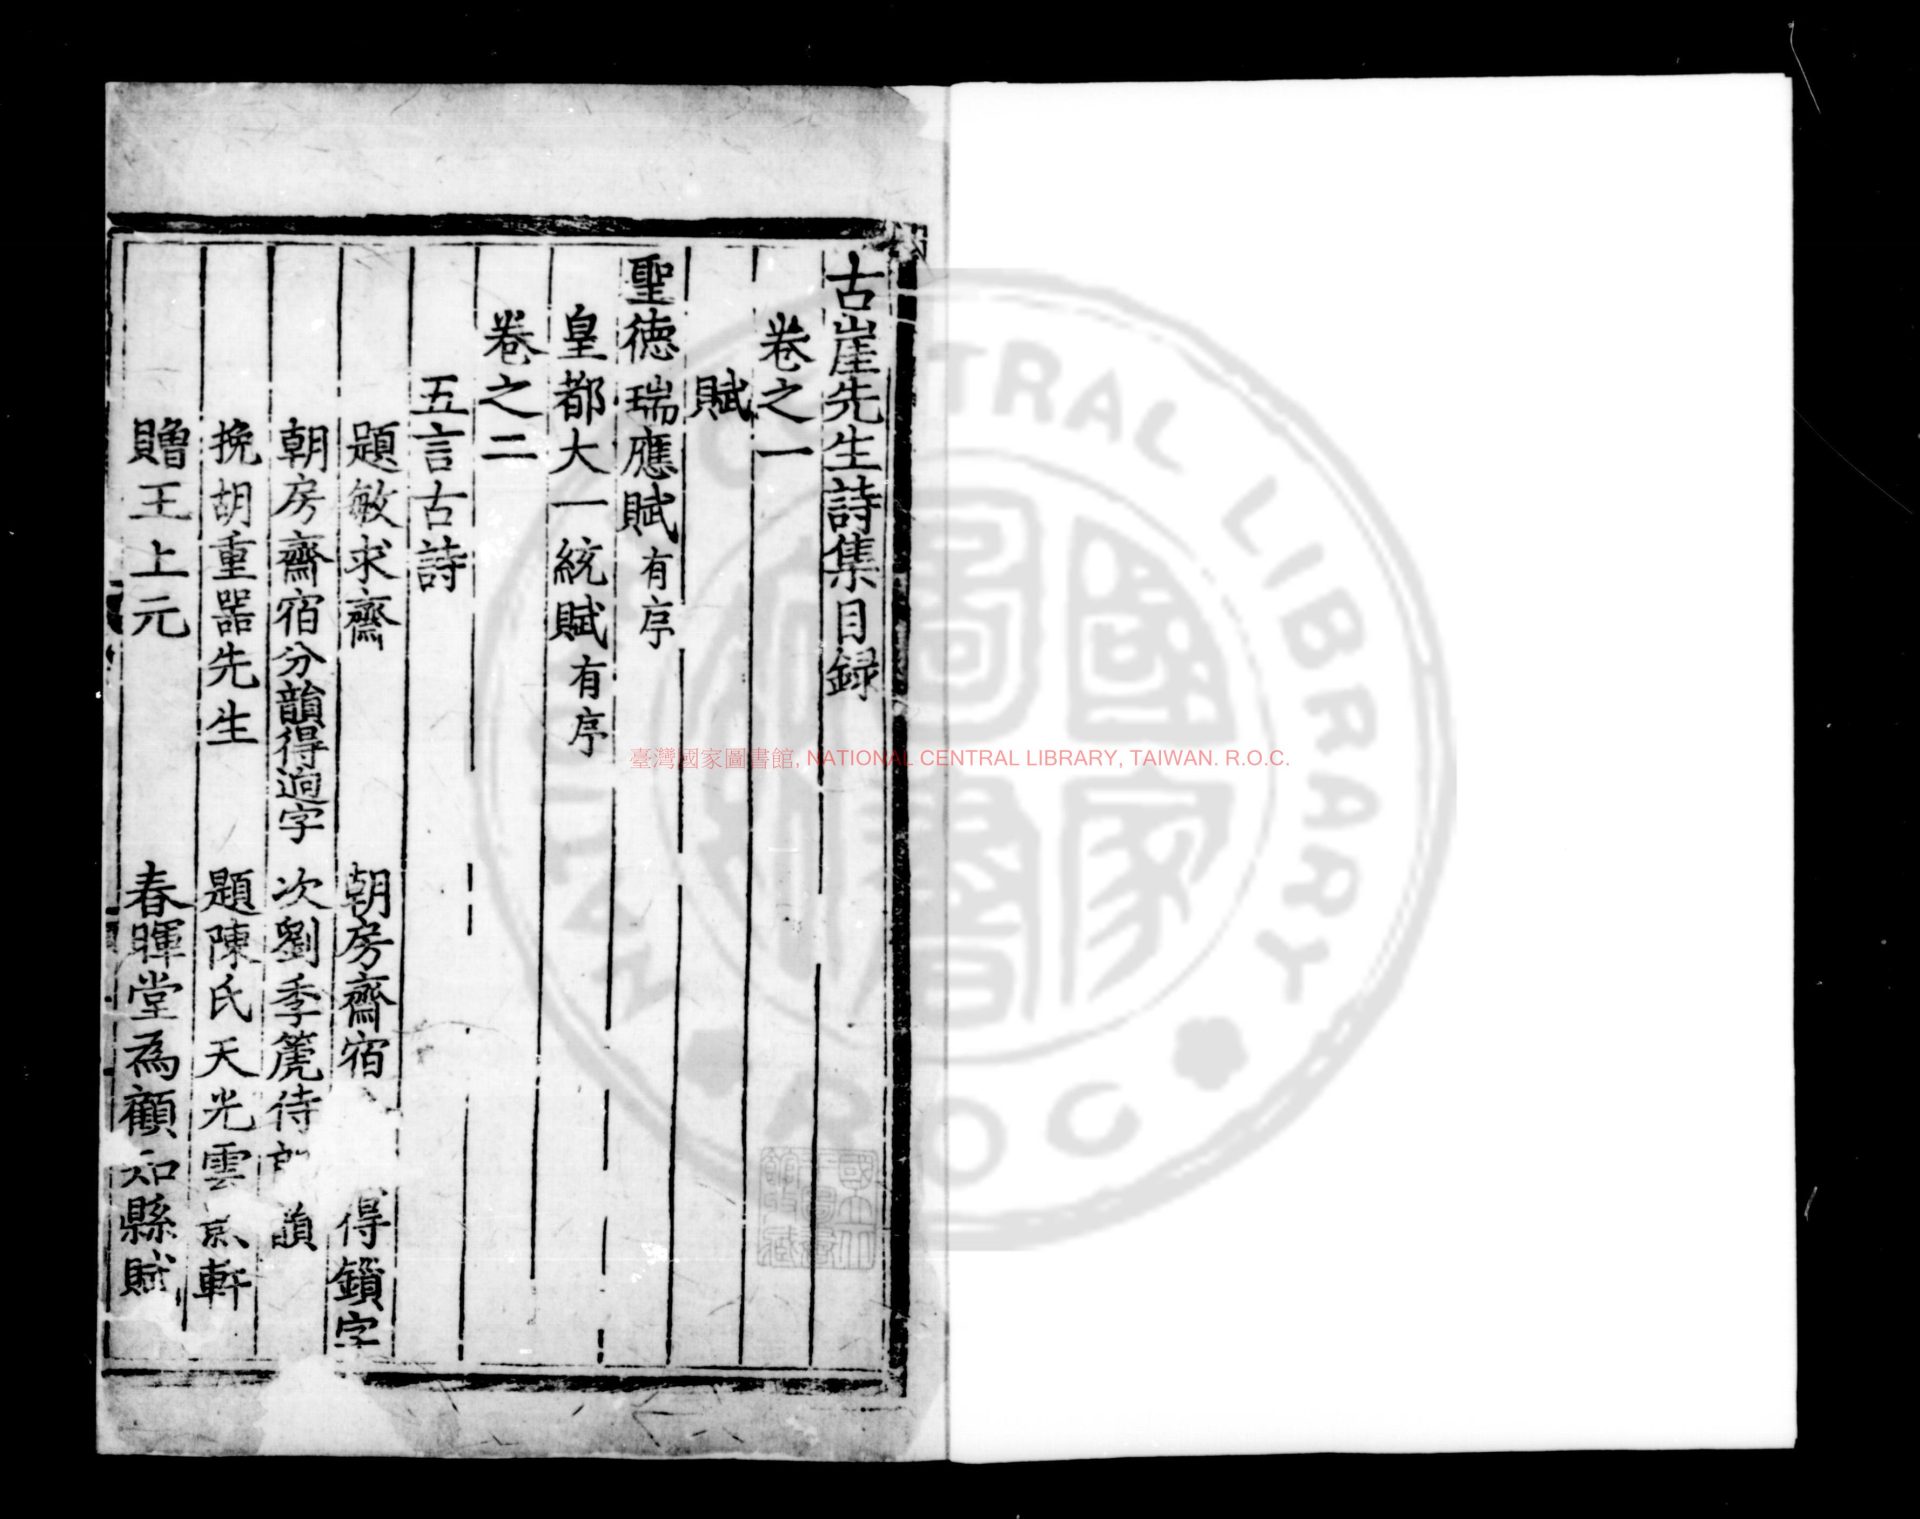 古崖先生詩集目録
卷之一
賦
聖德瑞應賦有序
皇都大一統賦有序
卷之二
五言古詩
題敏求齋 朝房齋宿 得鎖字
朝房齋宿分韻得逈字 次劉季箎侍 韻
挽胡重噐先生 題陳氏天光雲 軒
贈王上元 春暉堂為顧知縣賦
臺灣國家圖書館, NATIONAL CENTRAL LIBRARY, TAIWAN. R.O.C.
NATIONAL CENTRAL LIBRARY
R.O.C.
國家圖書